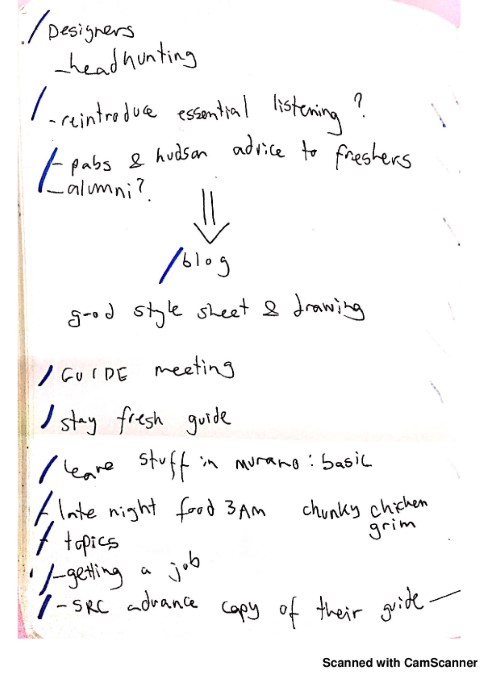 Designers
-headhunting
-reintroduce essential listening?
- pabs & hudson advice to freshers
-alumni?
blog
good style sheet & drawing
GUIDE meeting
stay fresh guide
leave stuff in murano: basic
late night food 3AM chunky chicken
grim
topics
-getting a job
-SRC advance copy of their guide —
Scanned with CamScanner